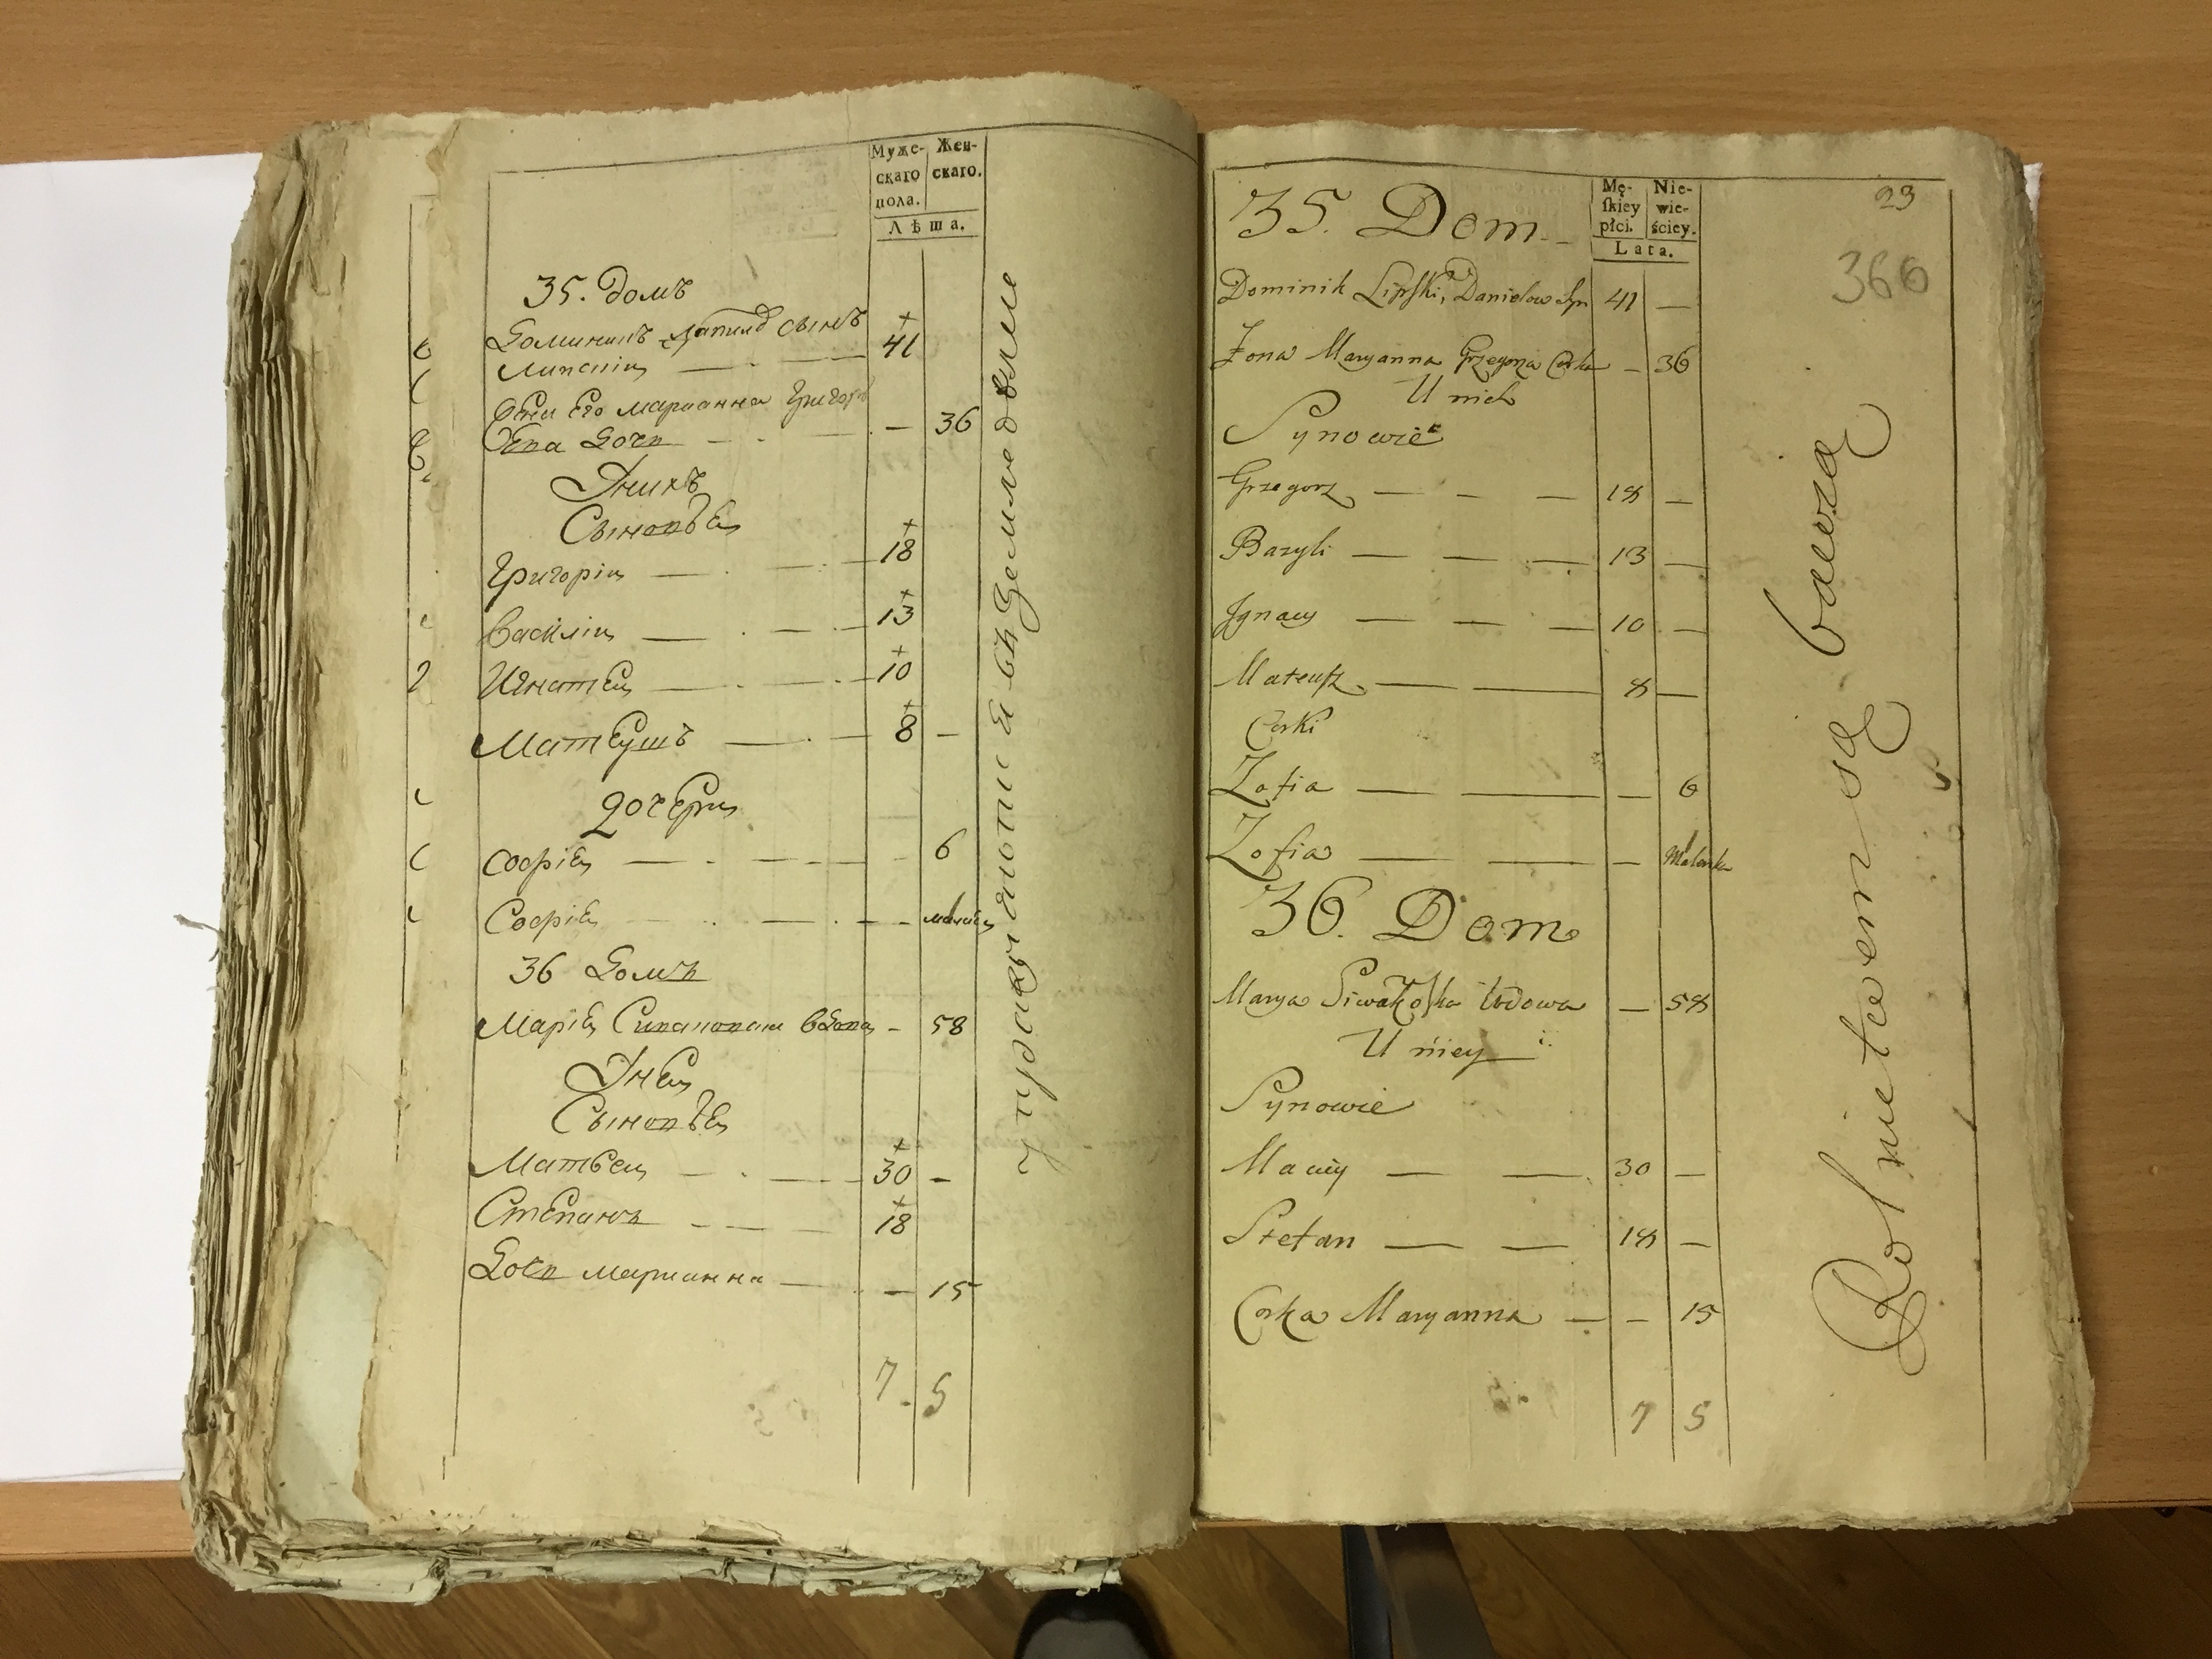 Муже-
скаго
пола.
Жен-
скаго.
Лѣта.
35. домъ
Доминикъ Данилъ сынъ
Липскій — 41
Жена Его марианна Григорь
Ева Дочь — 36
У нихъ
Сыновьѣ
Григорій — 18
Василій — 13
Игнатей — 10
Матеушъ — 8 —
Дочери
Софіѣ — 6
Софіѣ — малаѣ
36 Домъ
Маріѣ вдова — 58
У нея
Сыновьѣ
Матвей — 30 —
Степанъ — 18
Дочь марианна — — 15
7 . 5
упражняютца въ Земледелие
23
366
35. Dom
Mę-
ſkiey
płci.
Nie-
wie-
ściey.
Lata.
Dominik Lipſki, Danielow Syn 41 —
Żona Maryanna Grzegorza Corka — 36
U nich
Synowie
Grzegorz — — — 18 —
Bazyli — — — 13 —
Jgnacy — — — 10 —
Mateuſz — — 8 —
Corki
Zofia — — — 6
Zofia — — — Malenka
36. Dom
Marya Wdowa — 58
U niey
Synowie
Maciey — — 30 —
Stefan — — 18 —
Corka Maryanna — — 15
7 5
Rolnictwem są bawią